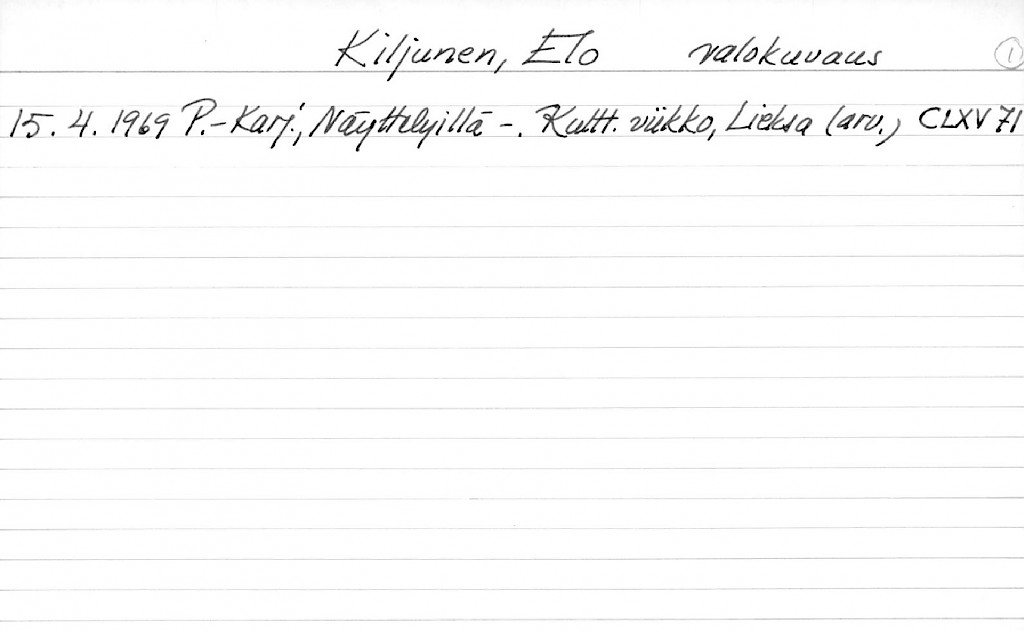 Kiljunen, Elo valokuvaus 1
15. 4. 1969 P.-Karj., Näyttelyillä -. Kultt. viikko, Lieksa (arv.) CLXV 71